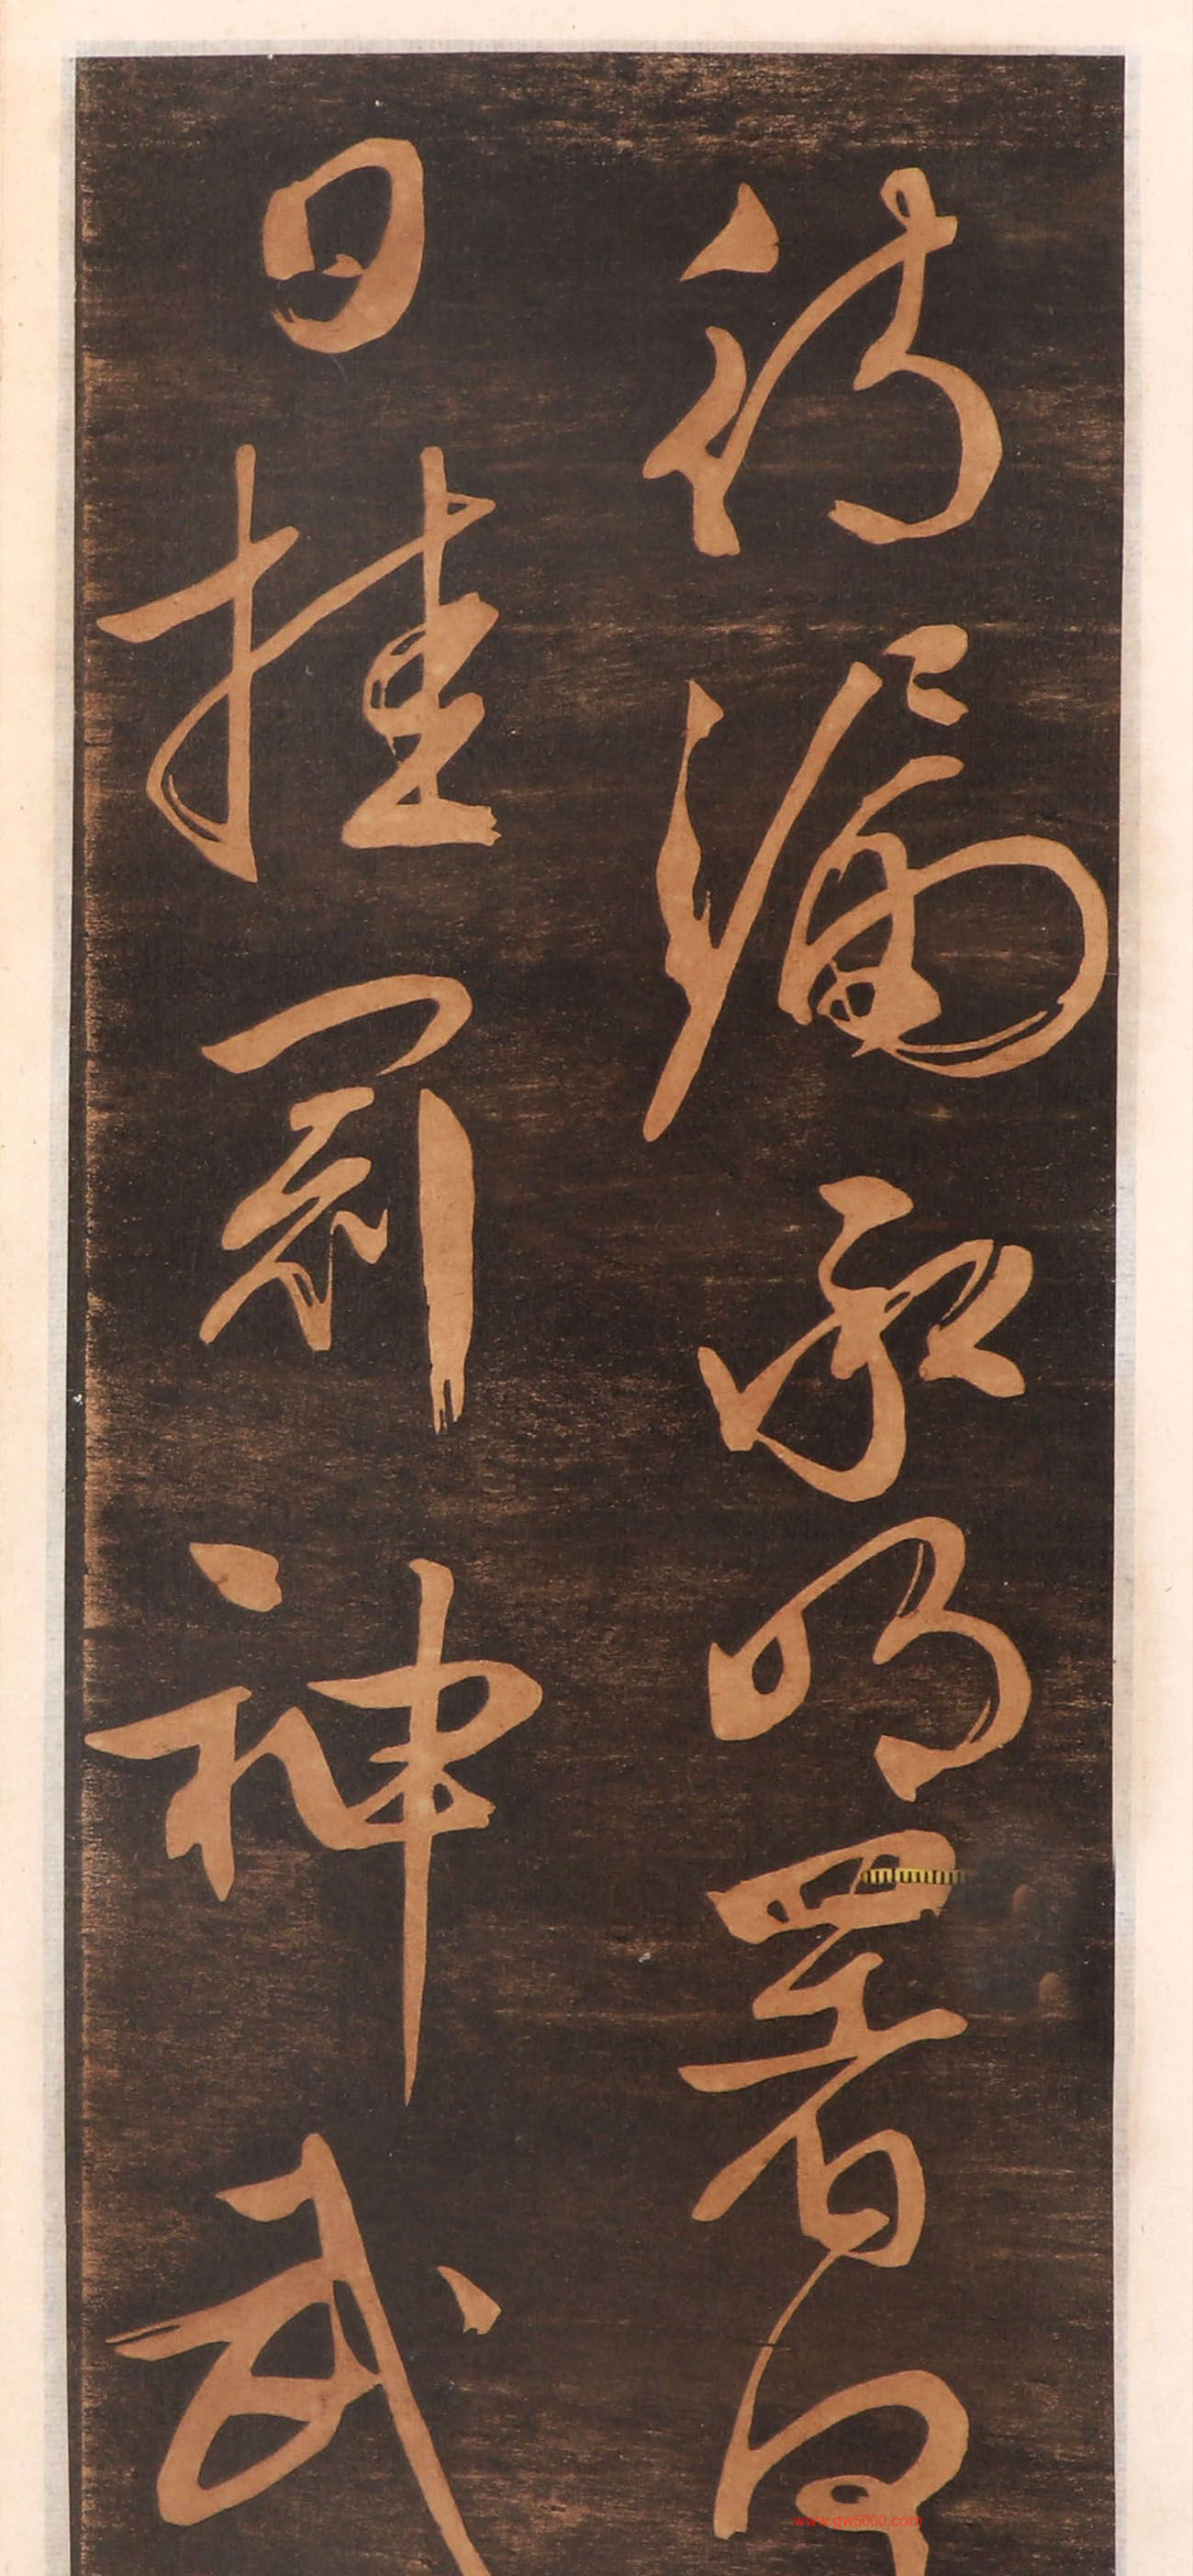 待漏承明署何
日挂冠神武
www.gw5000.com